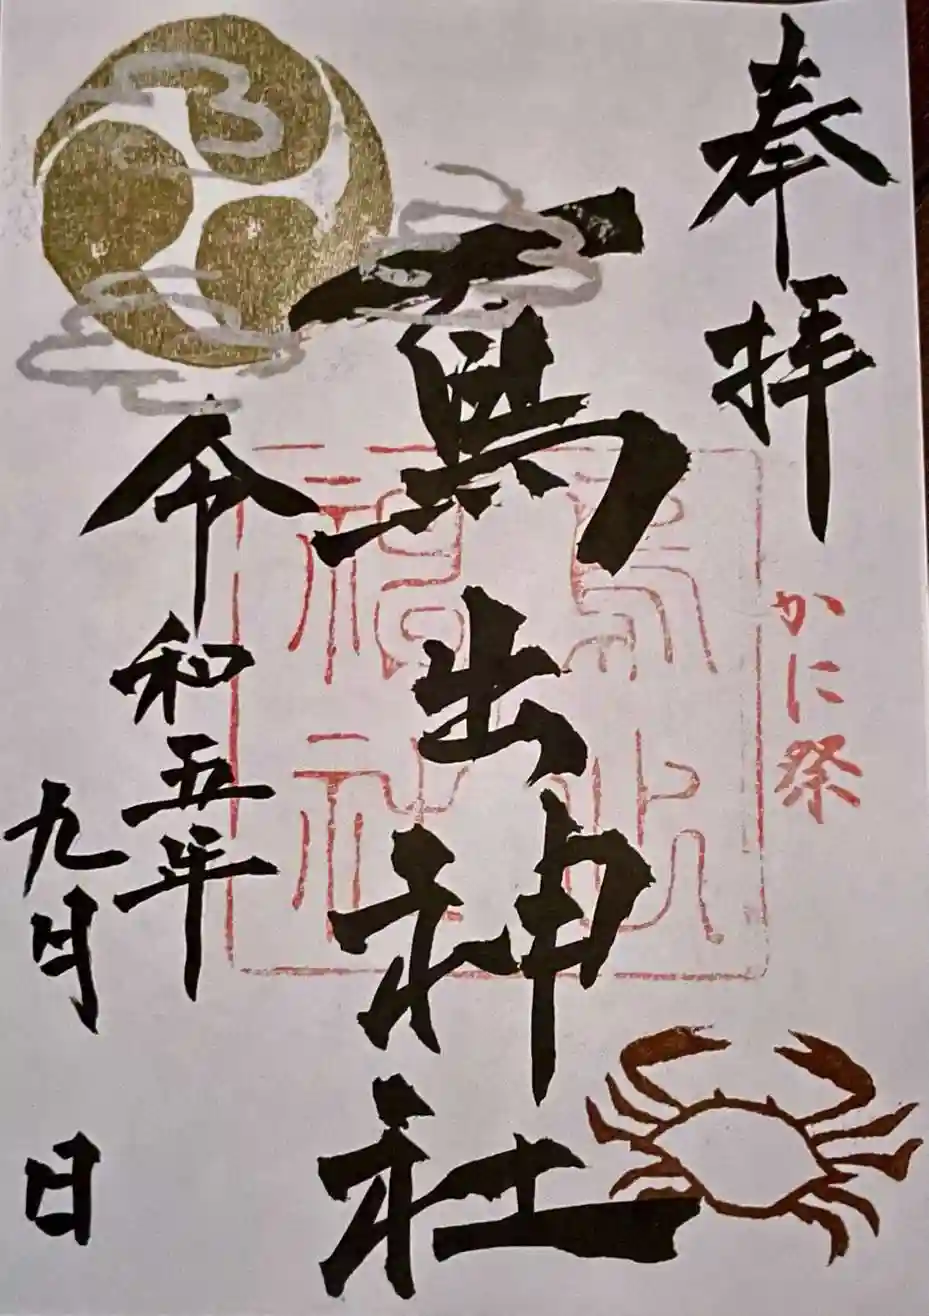 奉拝
かに祭
鳥出神社
令和五年
九月 日